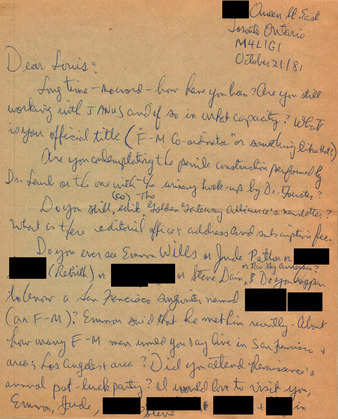 Queen St. East
Toronto Ontario
M4L1G1
October 21/81
Dear Louis:
Long time - no word - how have you been? Are you still
working with JANUS and if so in what capacity? What
is your official title ("F-M Co-ordinator" or something like that?)
Are you contemplating the penile construction performed by
Dr. Laub or the one with the urinary hook-up by Dr. ?
Do you still (co) edit The Golden Gateway Alliance's newsletter?
What is there editorial office, address and subscription fee.
Do you ever see Emmon Wills or Jude Patton or
(Rebirth) or or Steve Dain, ? Do you happen
to know a San Francisco named
(an F-M)? Emmon said that he met him recently. About
how many F-M men would you say live in San Francisco &
area; Los Angeles area? Did you attend Renaissance's
annual pot-luck party? I would love to visit you,
Emmon, Jude, Steve & in